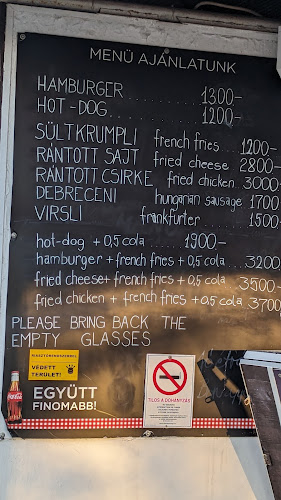 MENÜ AJÁNLATUNK
HAMBURGER ........... 1300-
HOT-DOG ........... 1200-
SÜLTKRUMPLI french fries... 1200-
RÁNTOTT SAJT fried cheese 2800-
RÁNTOTT CSIRKE fried chicken 3000-
DEBRECENI hungarian sausage 1700
VIRSLI frankfurter ....... 1500-
hot-dog + 0,5 cola ...... 1900-
hamburger + french fries + 0,5 cola .... 3200
fried cheese + french fries + 0,5 cola ... 3500-
fried chicken + french fries + 0,5 cola 3700
PLEASE BRING BACK THE
EMPTY GLASSES
VÉDETT
TERÜLET!
EGYÜTT
FINOMABB!
Coca-Cola
TILOS A DOHÁNYZÁS